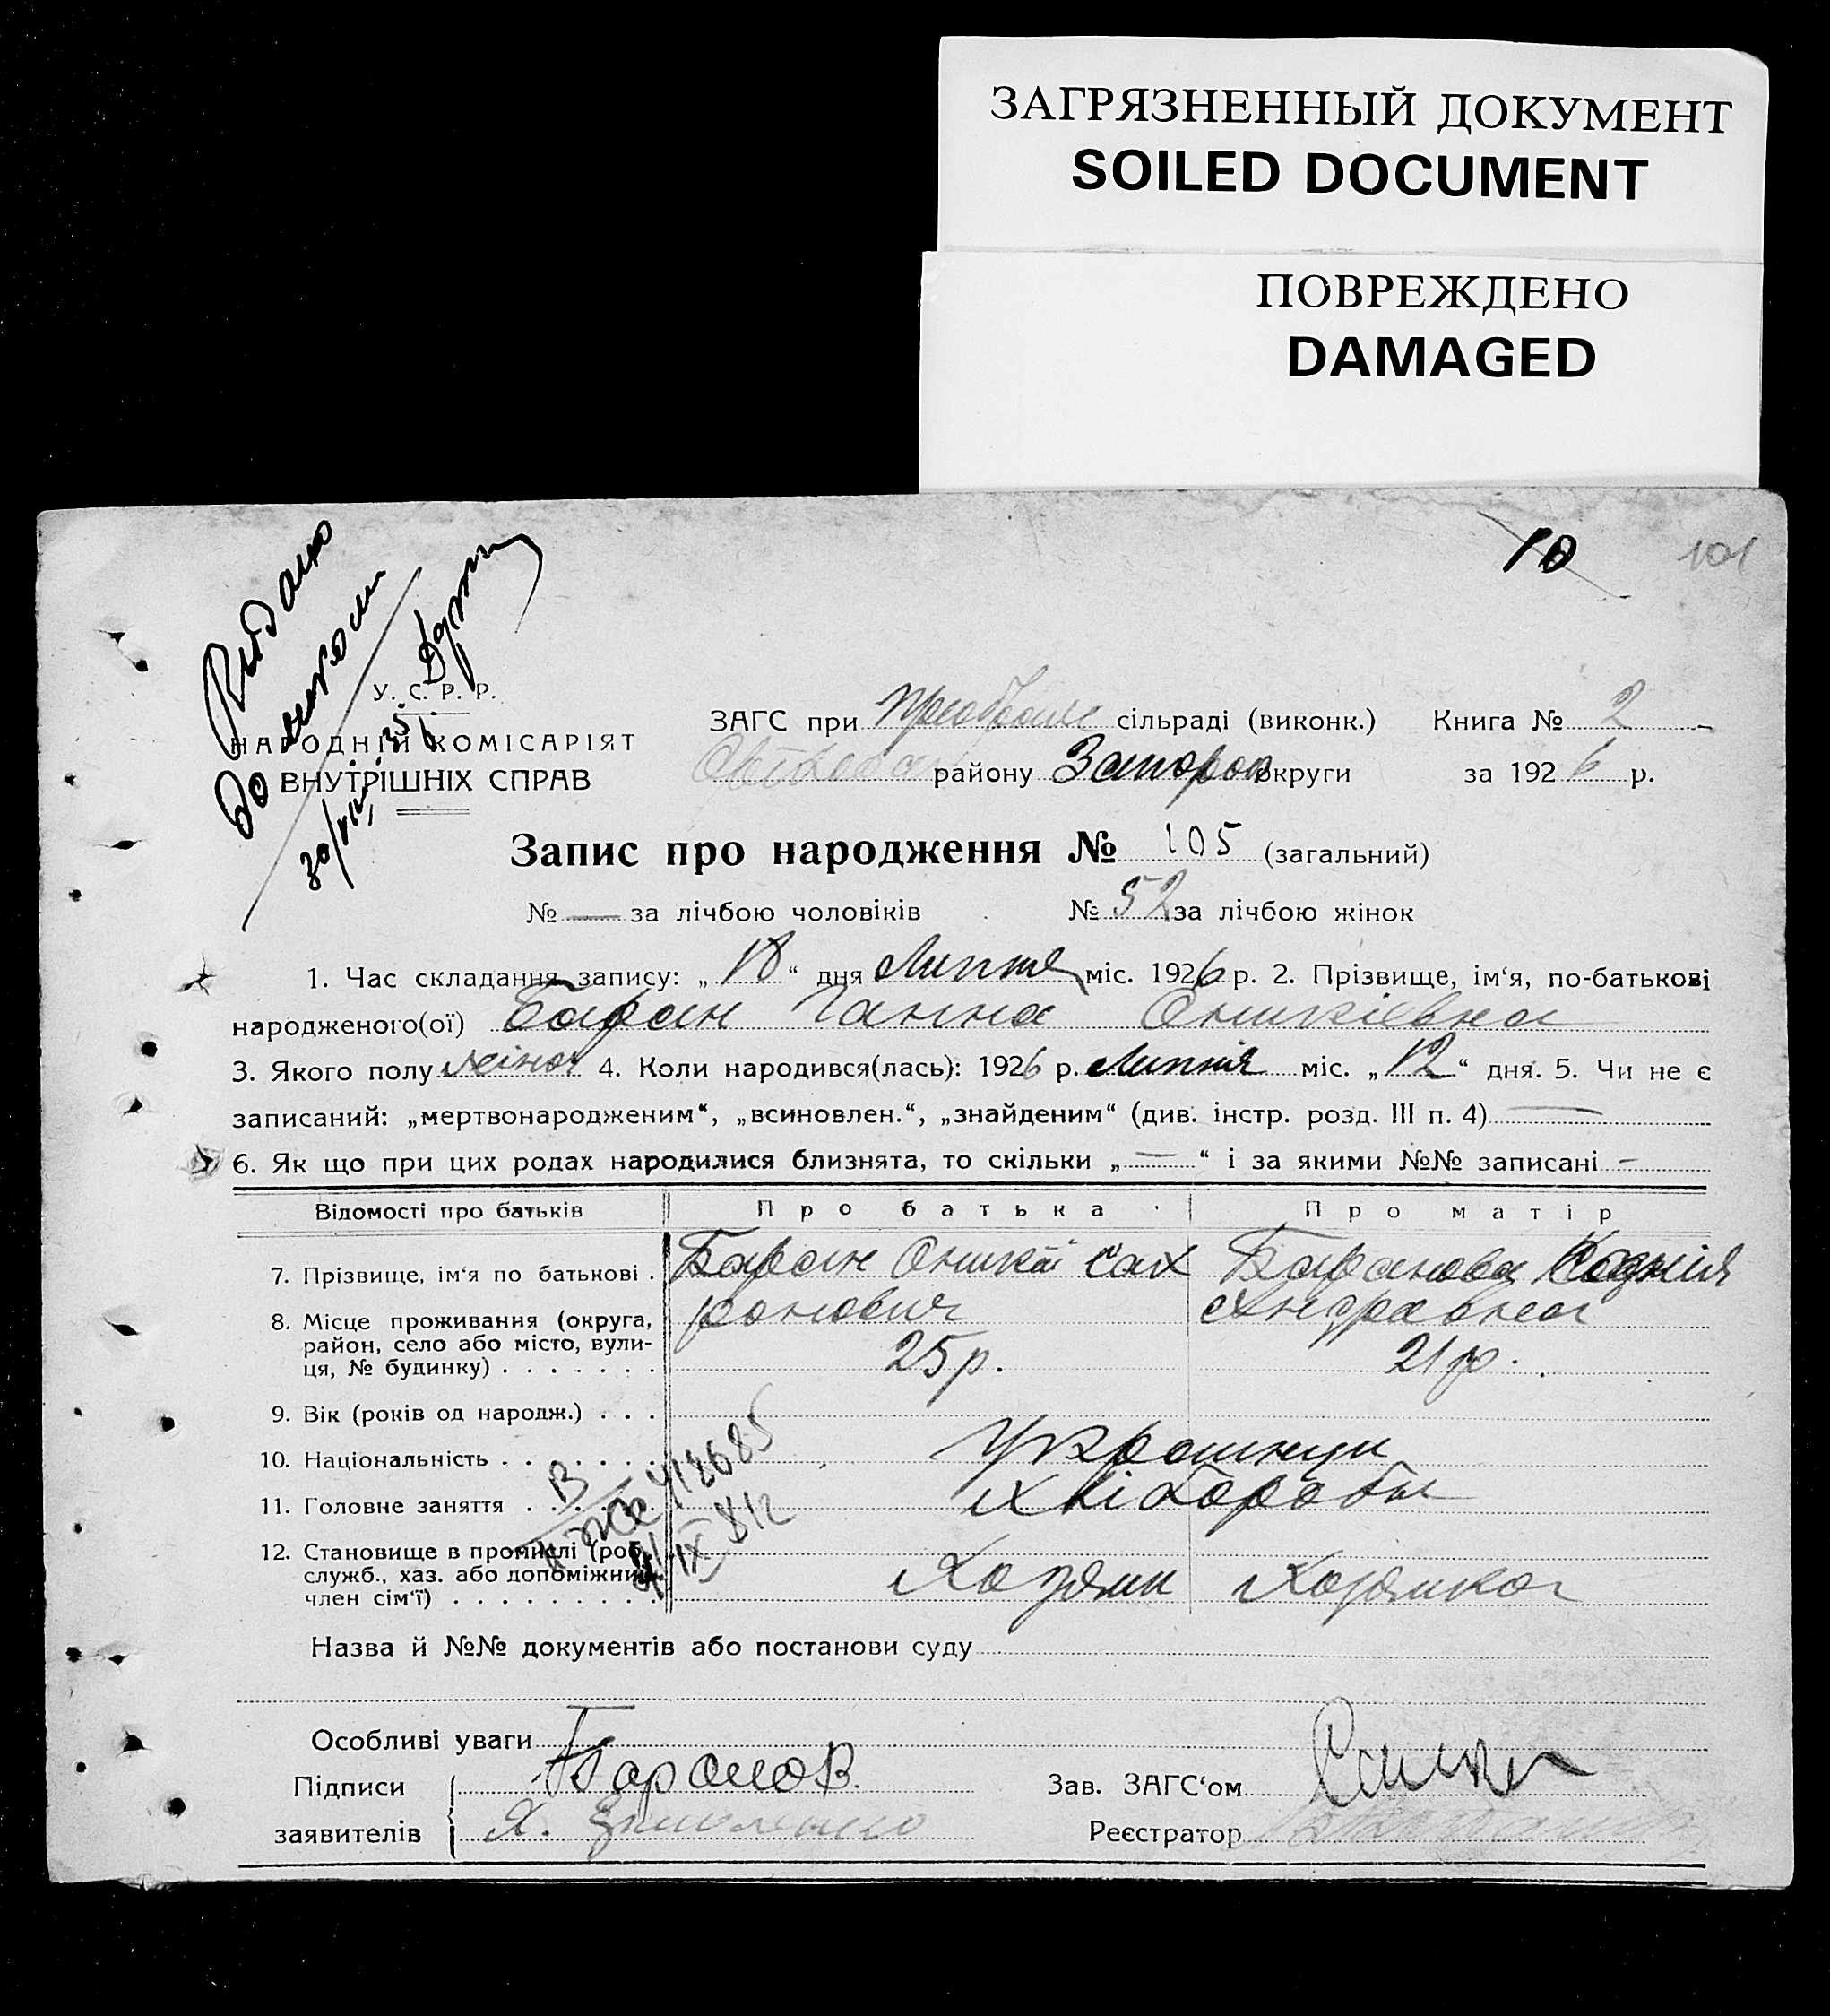 ЗАГРЯЗНЕННЫЙ ДОКУМЕНТ
SOILED DOCUMENT
ПОВРЕЖДЕНО
DAMAGED
10 101
Видано
У. С. Р. Р.
НАРОДНІЙ КОМІСАРІЯТ
ВНУТРІШНІХ СПРАВ
ЗАГС при сільраді (виконк.) Книга № 2
району Запороз округи за 1926 р.
Запис про народження № 105 (загальний)
№ — за лічбою чоловіків № 52 за лічбою жінок
1. Час складання запису: „18“ дня Липня міс. 1926 р. 2. Прізвище, ім‘я, по-батькові
народженого(ої) Баран Ганна Оникіевна
3. Якого полу жіноч 4. Коли народився(лась): 1926 р. Липня міс. „12“ дня. 5. Чи не є
записаний: „мертвонародженим“, „всиновлен.“, „знайденим“ (див. інстр. розд. III п. 4) —
6. Як що при цих родах народилися близнята, то скільки „—“ і за якими №№ записані —
Відомості про батьків Про батька Про матір
7. Прізвище, ім‘я по батькові . Баран Оникій Сах Баранова
8. Місце проживання (округа, ронович Андравна
район, село або місто, вули-
ця, № будинку) . . . . . . . 25 р. 21 р.
9. Вік (років од народж.) . . .
10. Національність . . . . . . . Українци
11. Головне заняття . . . . . . Хліботоробы
12. Становище в промислі (роб.,
служб., хаз. або допоміжний
член сім‘ї) . . . . . . . . . Хозяин Хозяика
Назва й №№ документів або постанови суду
Особливі уваги
Підписи Баранов Зав. ЗАГС‘ом
заявителів Я. Реєстратор